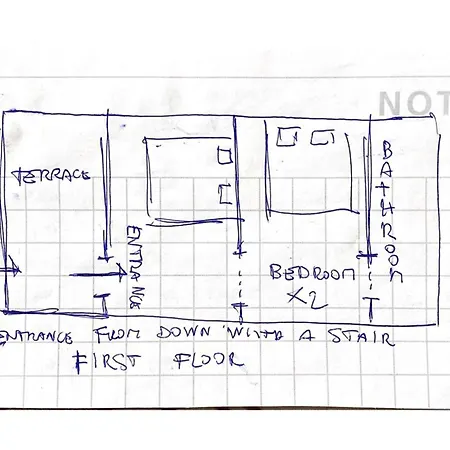 NOT
TERRACE
ENTRANCE
BATHROOM
BEDROOM
X2
ENTRANCE FROM DOWN WITH A STAIR
FIRST FLOOR